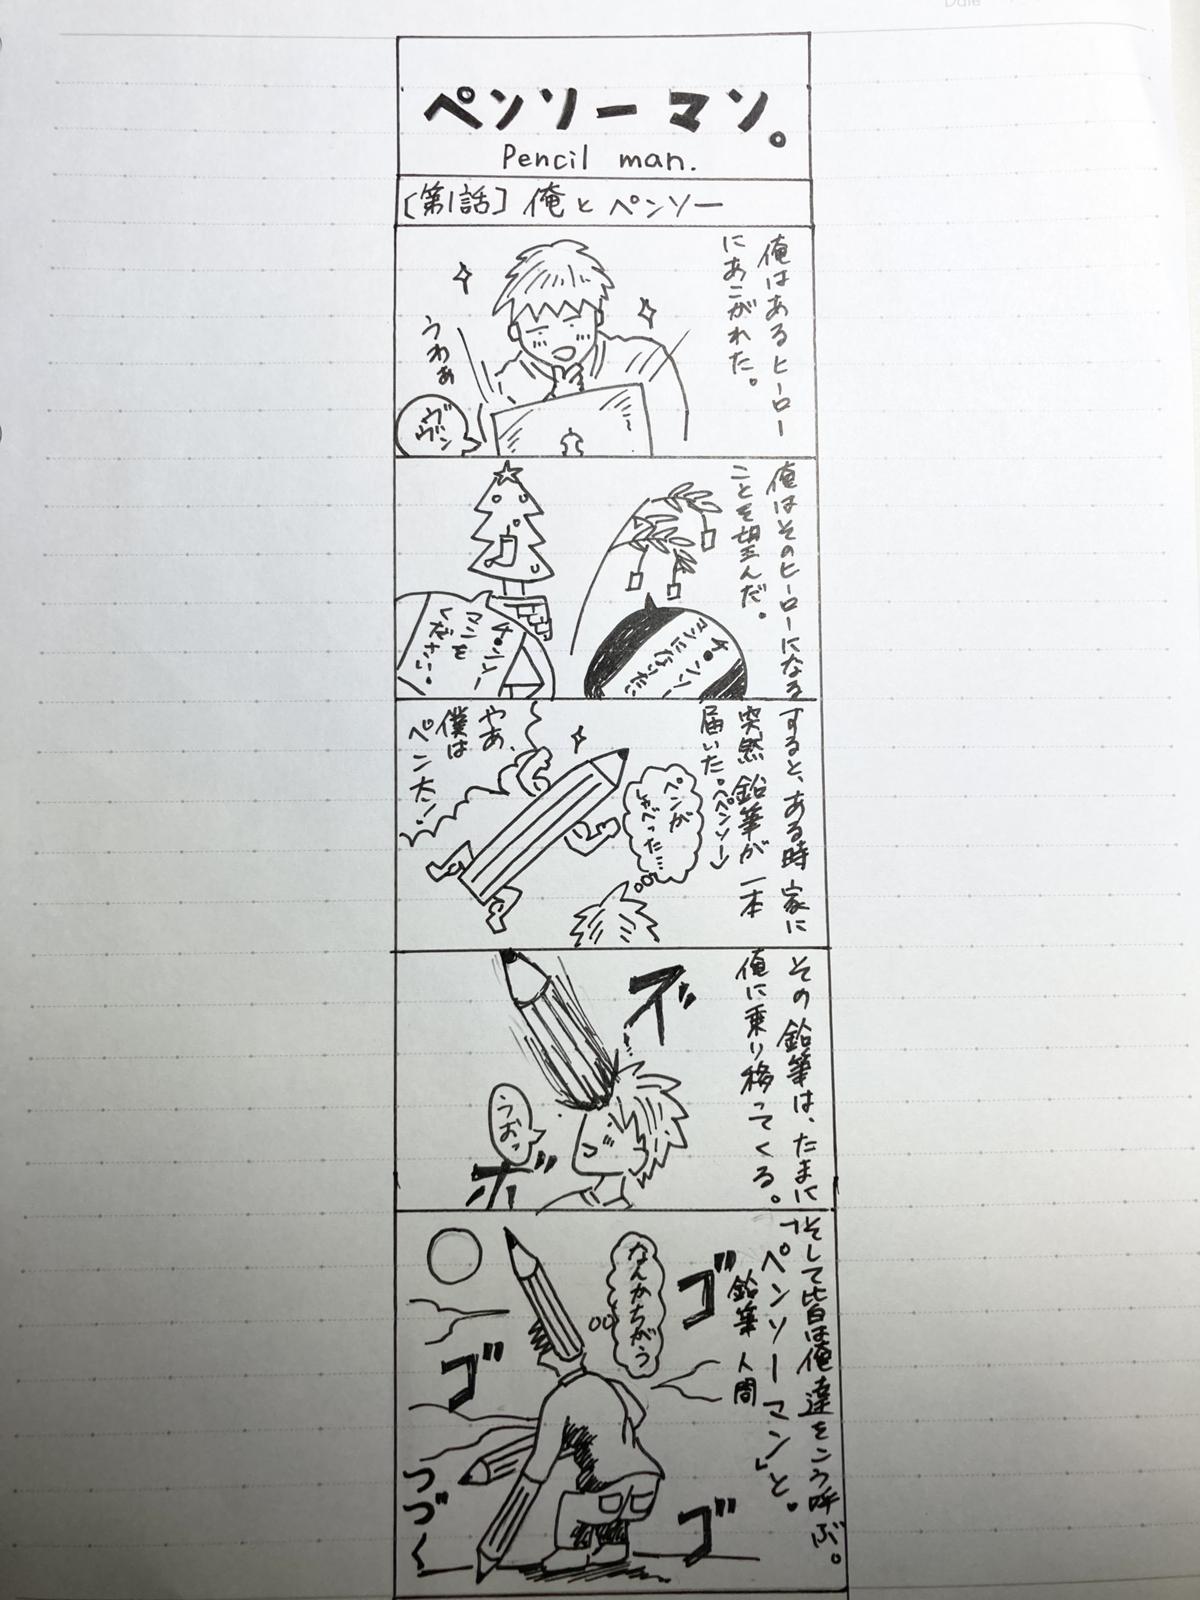 Date
ペンソーマン。
Pencil man.
[第1話] 俺とペンソー
俺はあるヒーロー
にあこがれた。
うわぁ
ヴヴン
俺はそのヒーローになる
ことを望んだ。
チ●ンソー
マンになりたい
チ●ンソー
マンを
ください。
すると、ある時 家に
突然 鉛筆が 一本
(ペンソー)
届いた。
ペンが
しゃべった…
やあ、
僕は
ペン太!
その鉛筆は、たまに
俺に乗り移ってくる。
ズ
うおっ
ボ
そして皆は俺達をこう呼ぶ。
「ペンソーマン」と。
鉛筆 人間
なんかちがう
ゴ
ゴ
ゴ
つづく